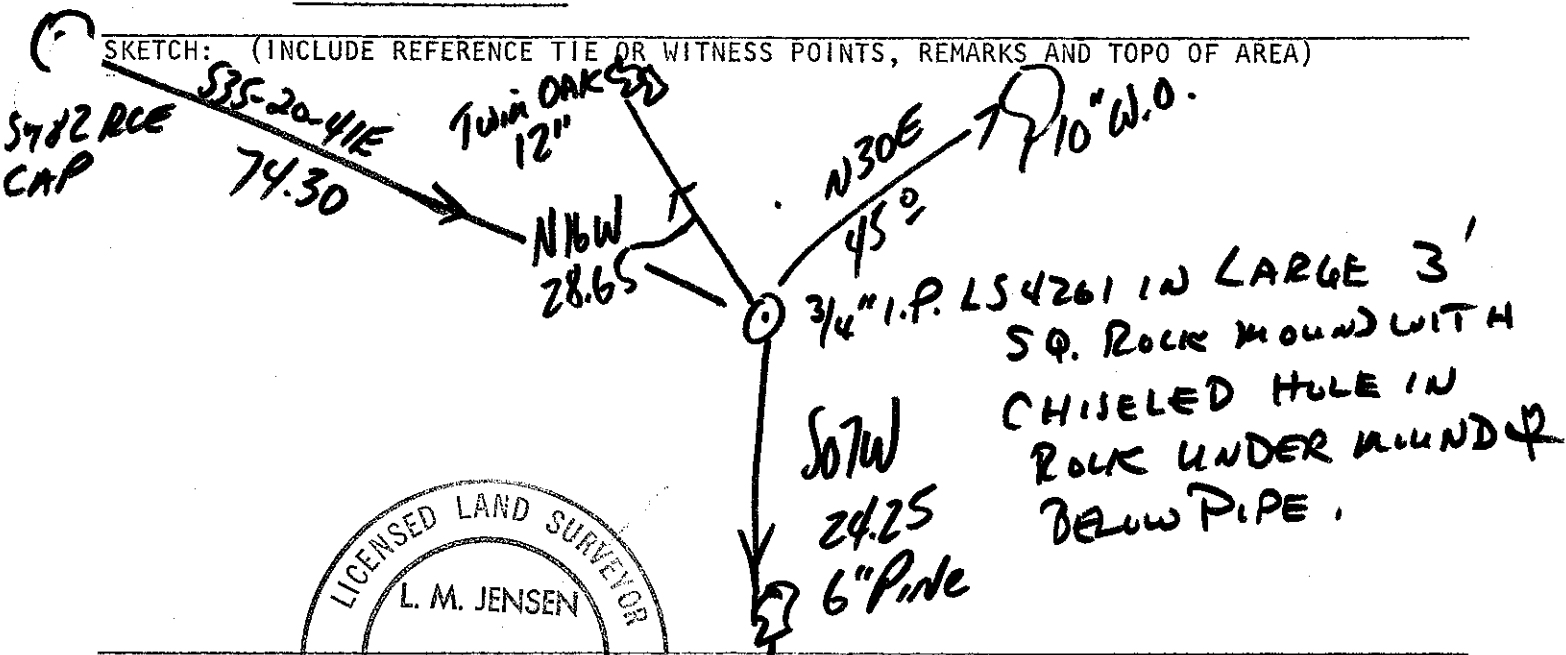 SKETCH: (INCLUDE REFERENCE TIE OR WITNESS POINTS, REMARKS AND TOPO OF AREA)
5782 RCE
CAP
S35-20-41E
74.30
TWIN OAK
12"
N16W
28.65
N30E
45º
10" W.O.
3/4" I.P. LS 4261 IN LARGE 3'
SQ. ROCK MOUND WITH
CHISELED HOLE IN
ROCK UNDER MOUND &
BELOW PIPE.
S07W
24.25
6" PINE
LICENSED LAND SURVEYOR
L. M. JENSEN